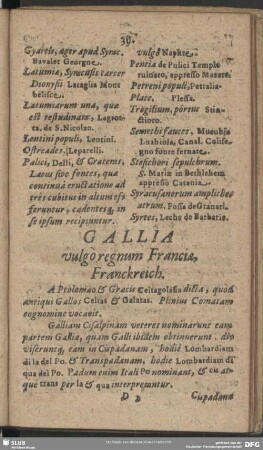 38.
Gyareis, ager apud Syrac.
Bavalet Georgne.
Latumia, Syracusis carcer
Dionysii Lataglia Mont
belisce.
Latumiarum una, quæ
est testudinatæ, Lagrot-
ta, de S. Nicolao.
Lentini populi, Lentini.
Ostreades. (Leparelli.
Palici, Delli, & Cratens,
Lacus sive fontes, quæ
continuâ eructatione ad
tres cubitus in altum ef-
feruntur, cadentesq, in
se ipsum recipiuntur.
vulgò Naphte.
Pentia de Pulici Templo
ruinato, appresso Mazare.
Petreni populi, Petralia.
Platæ, Plessa.
Trogilium, portus Stia-
tioro.
Semethi fauces, Mucubsa
Luabiola, Canal. Colise-
gno fonte fernate.
Stesichori sepulchrum.
S. Maria in Bethlehem
appresso Catania.
Syracusanorum amplic
atrum. Fossa de Gtanari.
Syrtes, Leche de Barbarie.
GALLIA
vulgò regnum Franciæ,
Franckreich.
A Ptolomæo & Græcis Celtogalatia dicta, quod
antiqui Gallos Celtas & Galatas. Plinius Comatam
cognomine vocavit.
Galliam Cisalpinam veteres nominarunt eam
partem Galliæ, quam Galli ibidem obtinuerunt. di-
viserunt q, eam in Cispadanam, hodiè Lombardiam
di la del Po. & Transpadanam, hodiè Lombardiam di
qua del Po. Padum enim Itali Po nominant, & cis at-
que trans per la & qua interpretantur.
D 2
Cispadana
SLUB